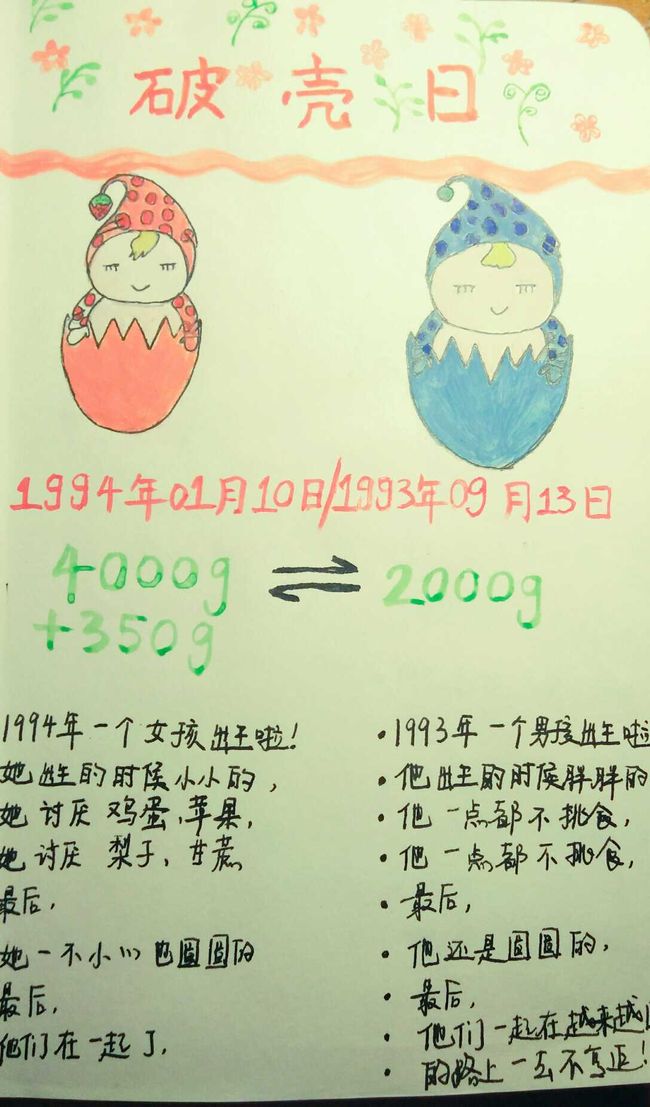 破壳日
1994年01月10日/1993年09月13日
4000g ⇌ 2000g
+350g
1994年一个女孩出生啦!
她出生的时候小小的,
她讨厌鸡蛋、苹果,
她讨厌梨子、甘蔗
最后,
她一不小心也圆圆的
最后,
他们在一起了.
·1993年一个男孩出生啦
·他出生的时候胖胖的
·他一点都不挑食,
·他一点都不挑食,
·最后,
·他还是圆圆的,
·最后,
·他们一起在越来越
·的路上一去不复返!